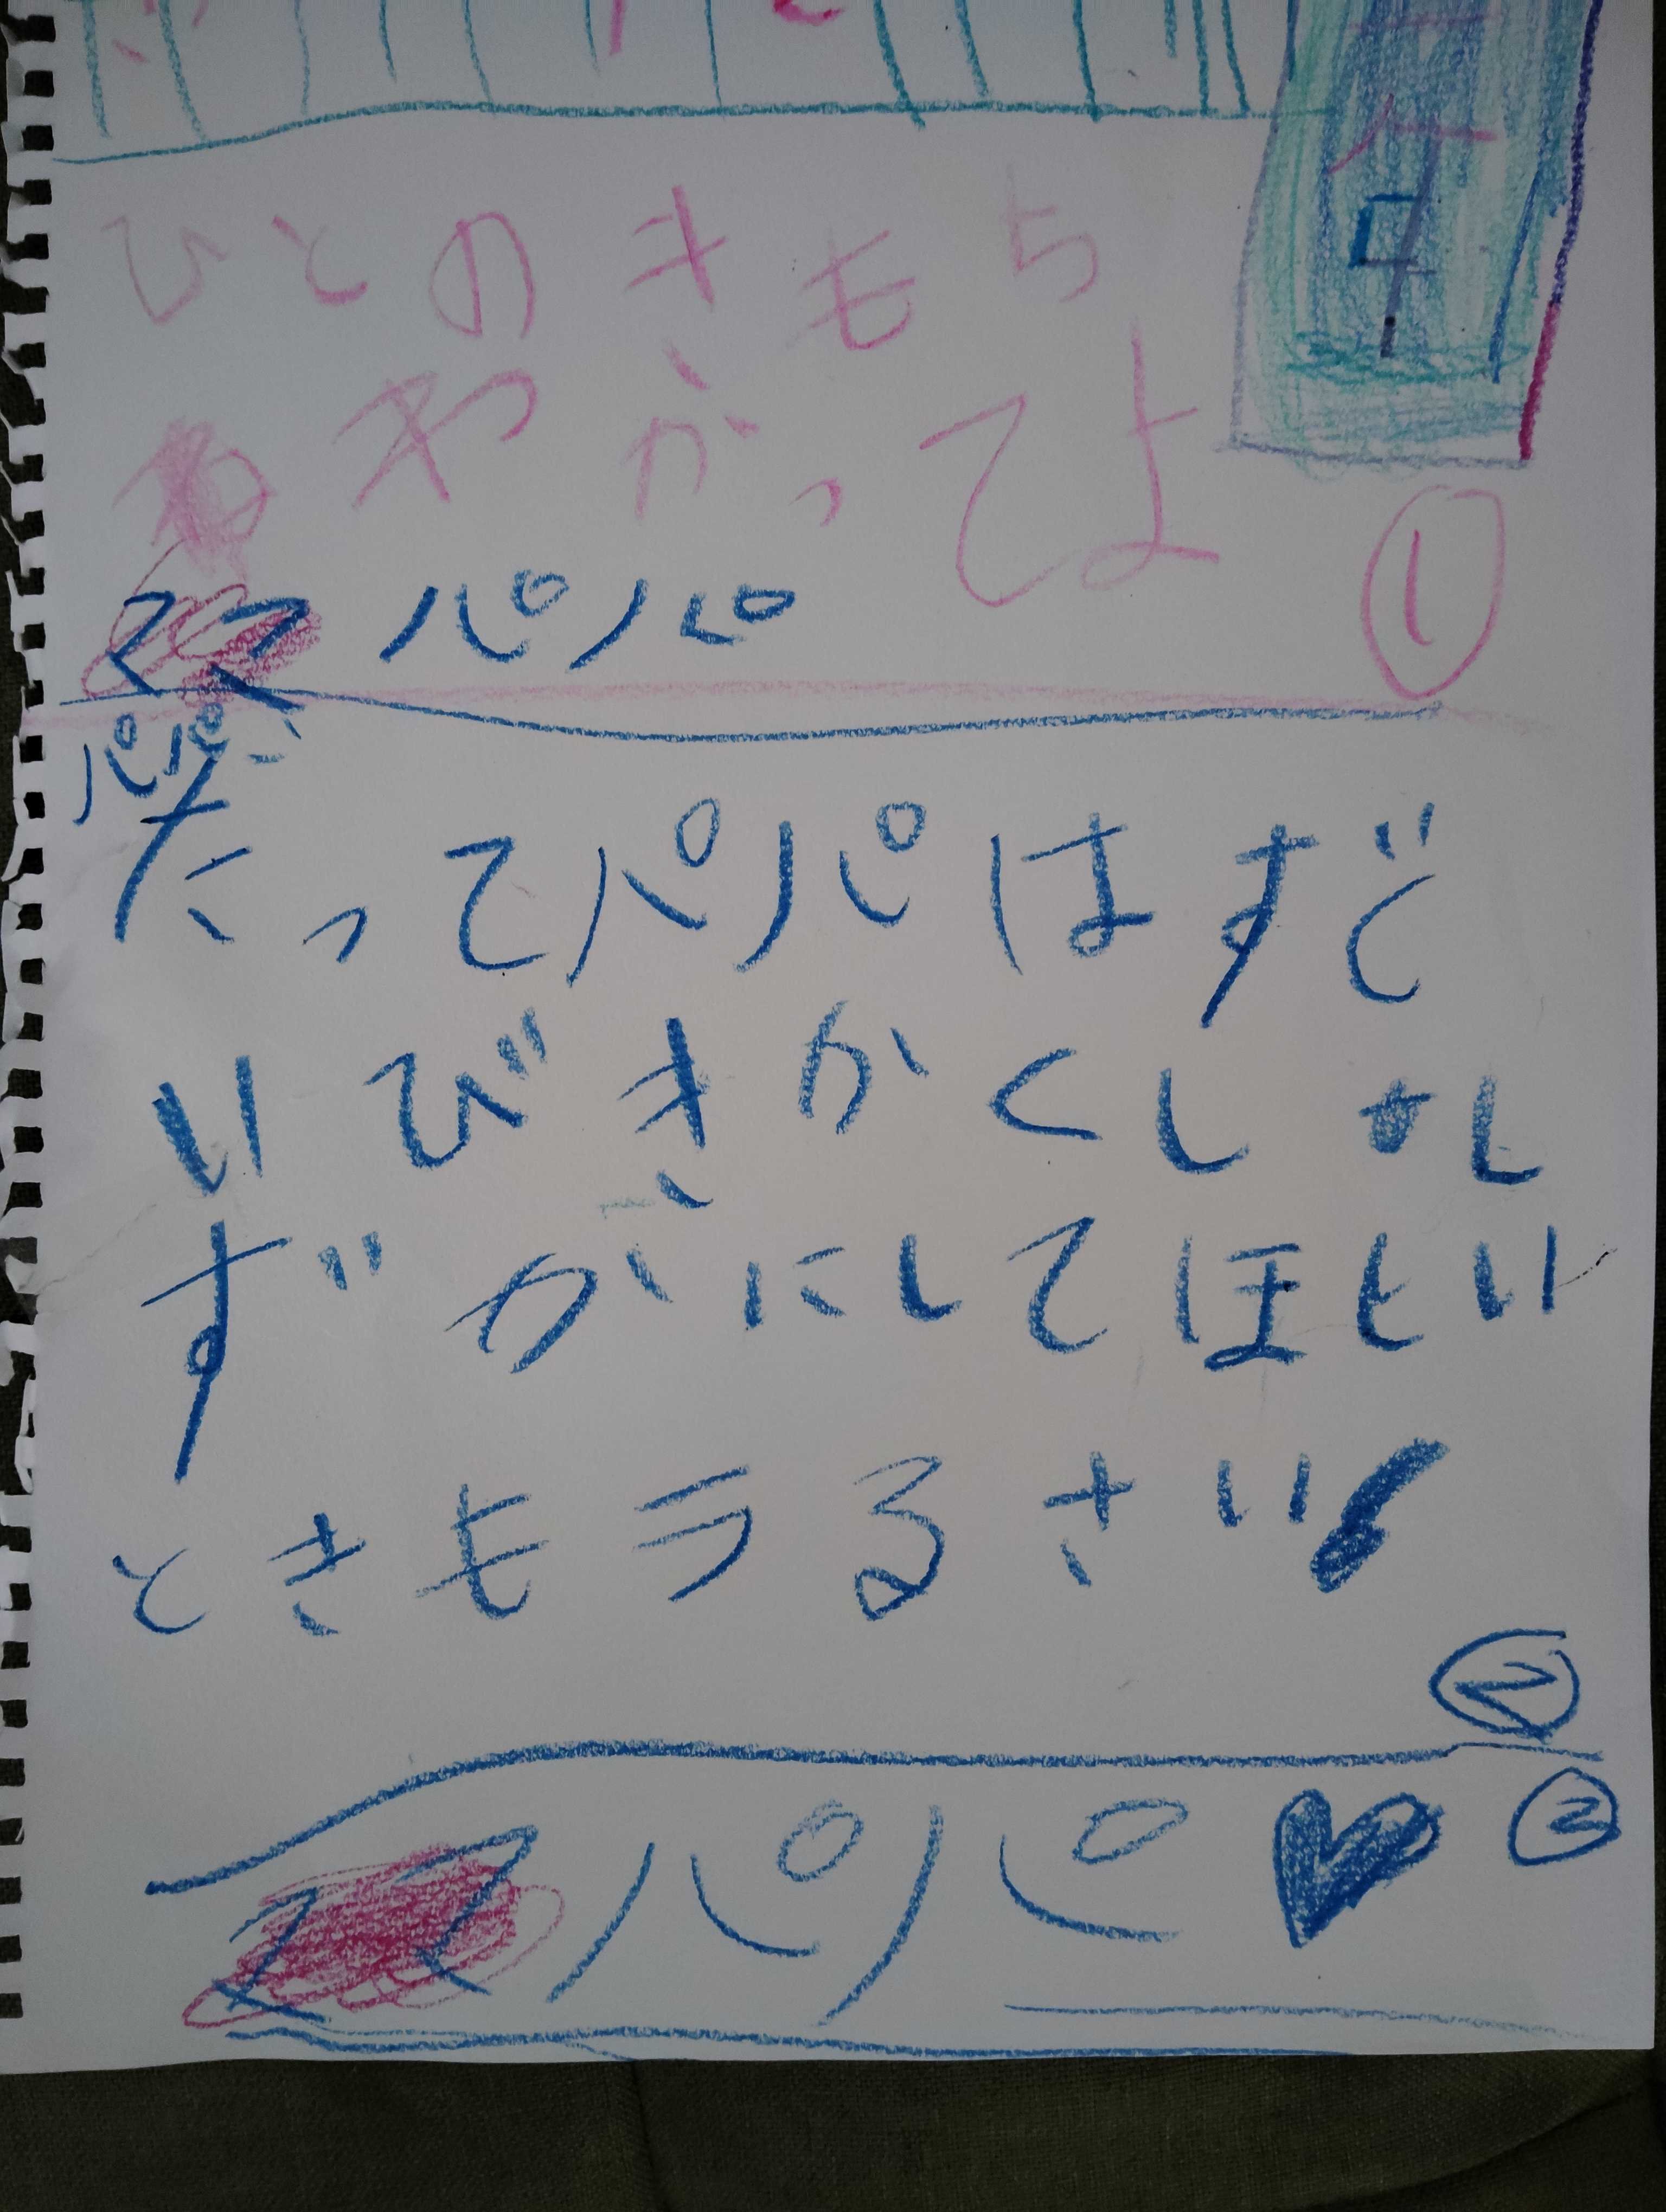 ひとのきもち
わかってよ
①
ママ パパ
パパ
だってパパはすぐ
いびきかくし
しずかにしてほしい
ときもうるさい
②
ママパパ♥ ②